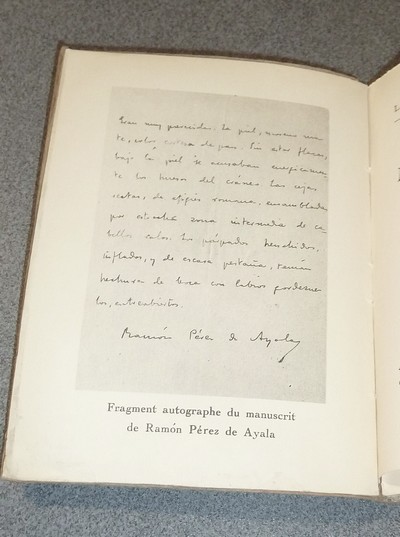 Eran muy parecidos: la piel, moreno ma-
te, color corteza de pan. Sin estar flacos,
bajo la piel se acusaban enérgicamen-
te los huesos del cráneo. Las cejas
rectas, de efigie romana, ensambladas
por estrecha zona intermedia de ca-
bellos sobre los párpados henchidos,
inflados, y de escasa pestaña;
hechura de boca con labios gordezue-
los, entreabiertos.
Ramón Pérez de Ayala
Fragment autographe du manuscrit
de Ramón Pérez de Ayala